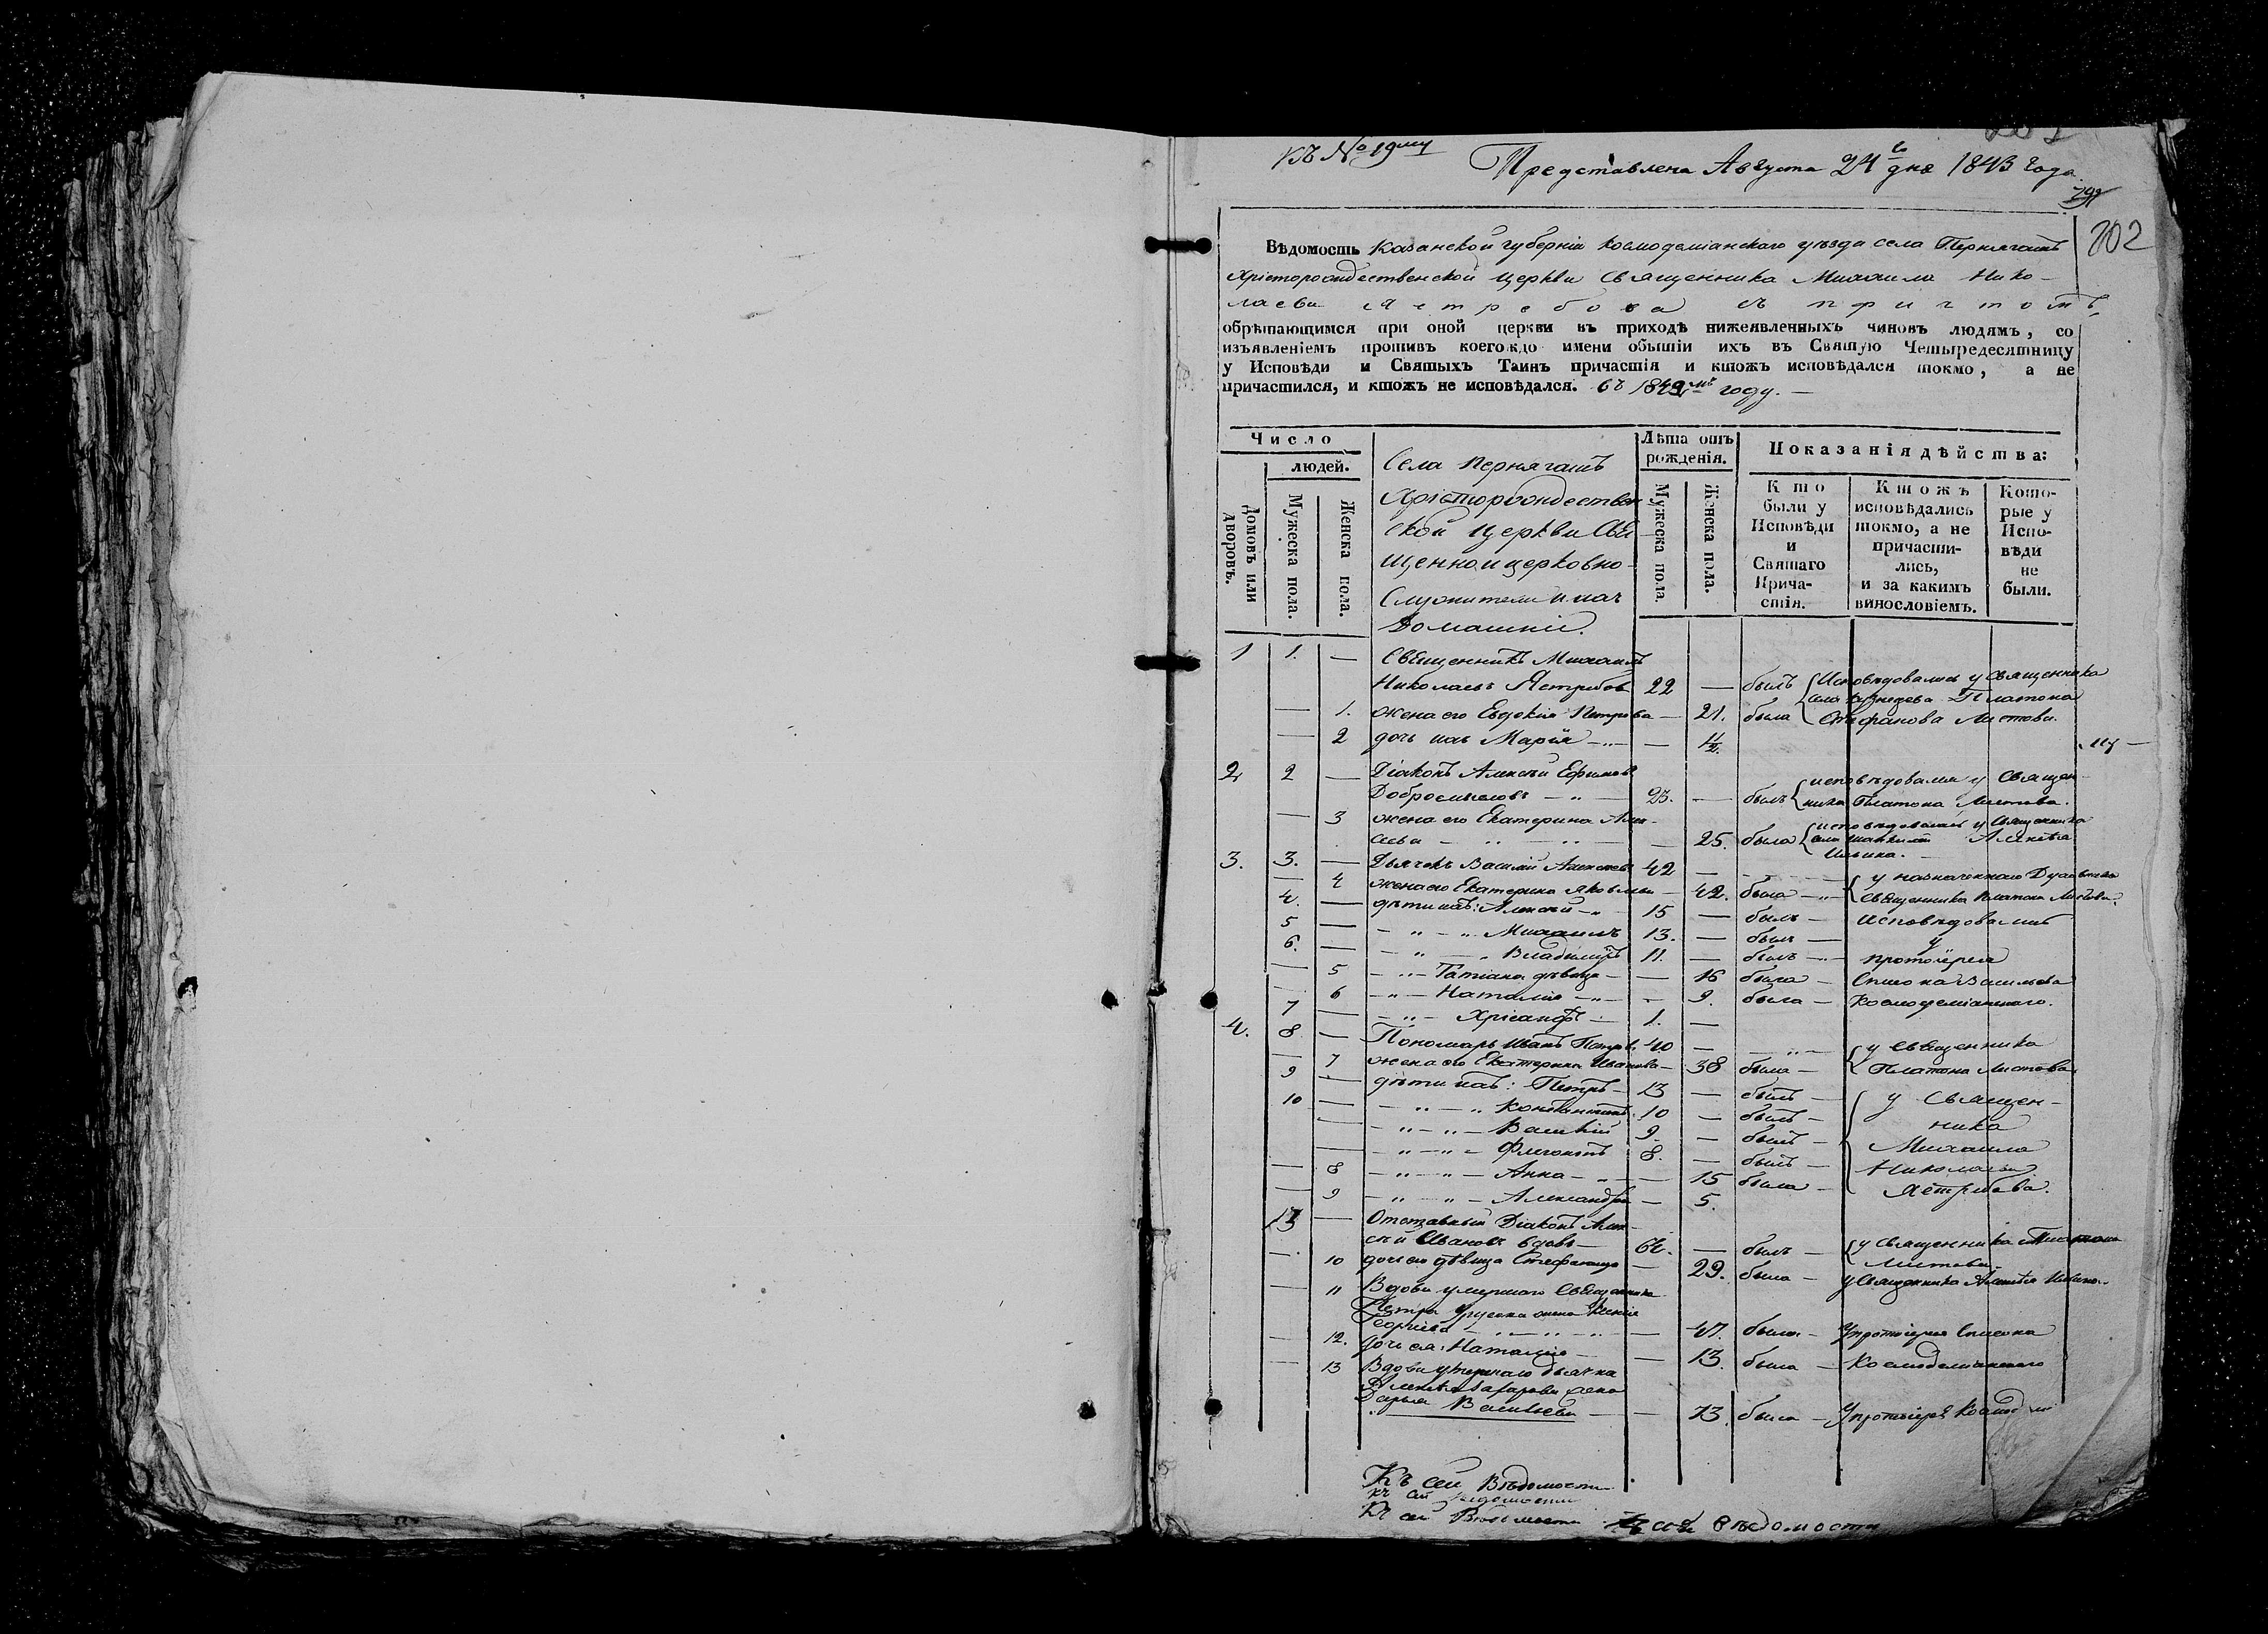 Къ № 19му
Представлена Августа 24го дня 1843 года.
202
Вѣдомость Казанской губерніи Космодеміанскаго уѣзда села Пернягашъ
Христорождественской церкви Священника Михаила Нико-
лаева Ястребова съ причтомъ,
обрѣтающимся при оной церкви въ приходѣ нижеявленныхъ чиновъ людямъ, со
изъявленіемъ противъ коегождо имени обытіи ихъ въ Святую Четыредесятницу
у Исповѣди и Святыхъ Таинъ причастія и ктожъ исповѣдался токмо, а не
причастился, и ктожъ не исповѣдался. въ 1843мъ году. —
Число
людей.
Домовъ или дворовъ.
Мужеска пола.
Женска пола.
Села Пернягашъ
Христорождествен-
ской церкви Свя-
щенно и церковно-
служители и ихъ
домашніи.
Лѣта отъ рожденія.
Мужеска пола.
Женска пола.
Показанія дѣйства:
Кто были у Исповѣди и Святаго Прича-стія.
Ктожъ исповѣдались токмо, а не причасти-лись, и за какимъ винословіемъ.
Кото-рые у Испо-вѣди не были.
1 1. — Священникъ Михаилъ
Николаевъ Ястребов 22 — былъ Исповѣдовались у Священника
— 1. жена его Евдокія Петрова — 21. была села Платона
Стефанова Листова.
— 2 дочь ихъ Марія — 1½
2 2 — Діаконъ Алексѣй Ефимовъ
Добросмысловъ — 25. — былъ исповѣдовался у Священ-
ника Платона Листова.
— 3 жена его Екатерина Алек-
сѣева — 25. была исповѣдовалась у Священника
села Алексѣя
Ильина.
3. 3. — Дьячекъ Василій Алексѣевъ 42 — у назначеннаго Духовника
— 4 жена его Екатерина Яковлева — 42. была — Священника Платона Листова.
4. — дѣти ихъ: Алексѣй — 15 — былъ — исповѣдовались
5 — Михаилъ 13. — былъ — у
6. — Владиміръ 11. — былъ — протоіерея
— 5 — Татіана дѣвица — 16 была — Симона Васильева
— 6 — Наталія — 9. была — Космодеміанскаго.
7 — Хрисанфъ — 1. —
4. 8 — Пономарь Иванъ Петров. 40 — у Священника
— 7 жена его Екатерина Иванова — 38 была — Платона Листова.
9 — дѣти ихъ: Петръ — 13 — былъ — у Священ-
10 — Константинъ 10 — былъ — ника
— Василій 9. — былъ — Михаила
— Флегонтъ 8. — былъ — Николаева
— 8 — Анна — 15 была — Ястребова.
— 9 — Александра — 5.
13 — Отставный Діаконъ Алек-
сѣй Ивановъ вдовъ — 62. — былъ — у Священника Платона
Листова
— 10 дочь его дѣвица Стефанида — 29. была — у Священника Алексѣя Ильина.
— 11 Вдова умершаго Священника
Петра жена Ксенія
Георгіева — 47. была — у протоіерея Симона
— 12. дочь ея: Наталія — 13. была — Космодеміанскаго
— 13 Вдова умершаго дьячка
Алексѣя Захарова жена
Дарья Васильева — 73. была — у протоіерея
Къ сей Вѣдомости
къ сей вѣдомости
Къ сей Вѣдомости Къ сей вѣдомости